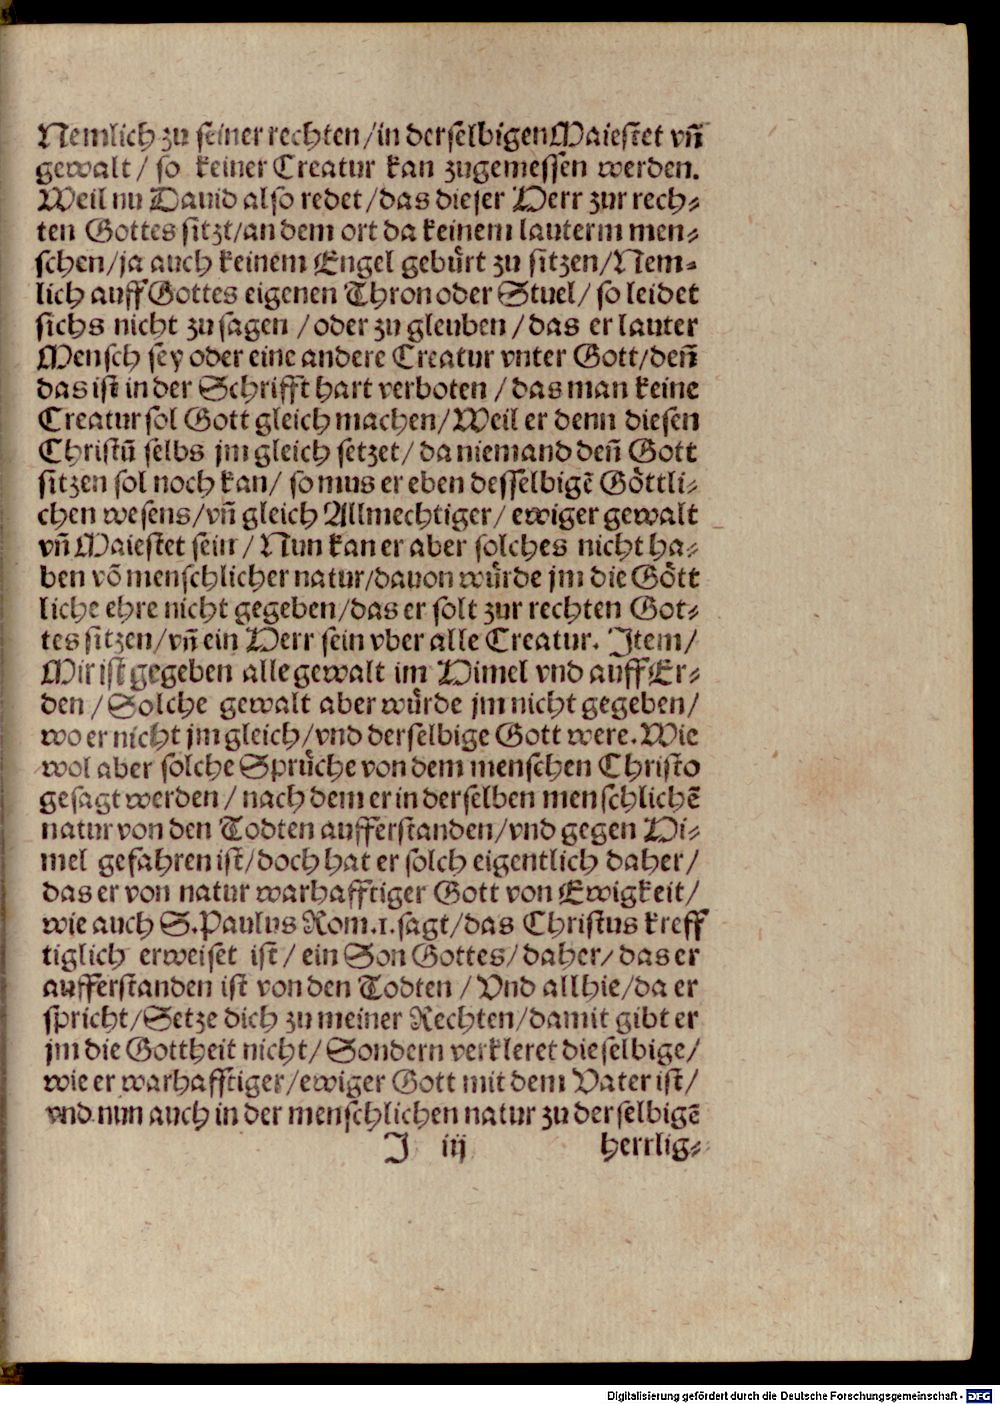 Nemlich zu seiner rechten/in derselbigen Maiestet vñ
gewalt/ so keiner Creatur kan zugemessen werden.
Weil nu Dauid also redet/das dieser Herr zur rech⸗
ten Gottes sitzt/an dem ort da keinem lauterm men⸗
schen/ja auch keinem Engel gebuͤrt zu sitzen/Nem⸗
lich auff Gottes eigenen Thron oder Stuel/ so leidet
sichs nicht zu sagen /oder zu gleuben /das er lauter
Mensch sey oder eine andere Creatur vnter Gott/deñ
das ist in der Schrifft hart verboten /das man keine
Creatur sol Gott gleich machen/Weil er denn diesen
Christū selbs jm gleich setzet/ da niemand deñ Gott
sitzen sol noch kan/ so mus er eben desselbigē Goͤttli⸗
chen wesens/vñ gleich Allmechtiger/ ewiger gewalt
vñ Maiestet sein/Nun kan er aber solches nicht ha⸗
ben võ menschlicher natur/dauon wuͤrde jm die Goͤtt
liche ehre nicht gegeben/das er solt zur rechten Got⸗
tes sitzen/vñ ein Herr sein vber alle Creatur. Item/
Mir ist gegeben alle gewalt im Himel vnd auff Er⸗
den/Solche gewalt aber wuͤrde jm nicht gegeben/
wo er nicht jm gleich/vnd derselbige Gott were. Wie
wol aber solche Spruͤche von dem menschen Christo
gesagt werden/ nach dem er in derselben menschlichē
natur von den Todten aufferstanden/vnd gegen Hi⸗
mel gefahren ist/doch hat er solch eigentlich daher/
das er von natur warhafftiger Gott von Ewigkeit/
wie auch S. Paulus Rom.1. sagt/das Christus kreff
tiglich erweiset ist/ ein Son Gottes/daher/das er
aufferstanden ist von den Todten /Vnd allhie/da er
spricht/Setze dich zu meiner Rechten/damit gibt er
jm die Gottheit nicht/ Sondern verkleret dieselbige/
wie er warhafftiger/ewiger Gott mit dem Vater ist/
vnd nun auch in der menschlichen natur zu derselbigē
J iij herrlig⸗
Digitalisierung gefördert durch die Deutsche Forschungsgemeinschaft - DFG